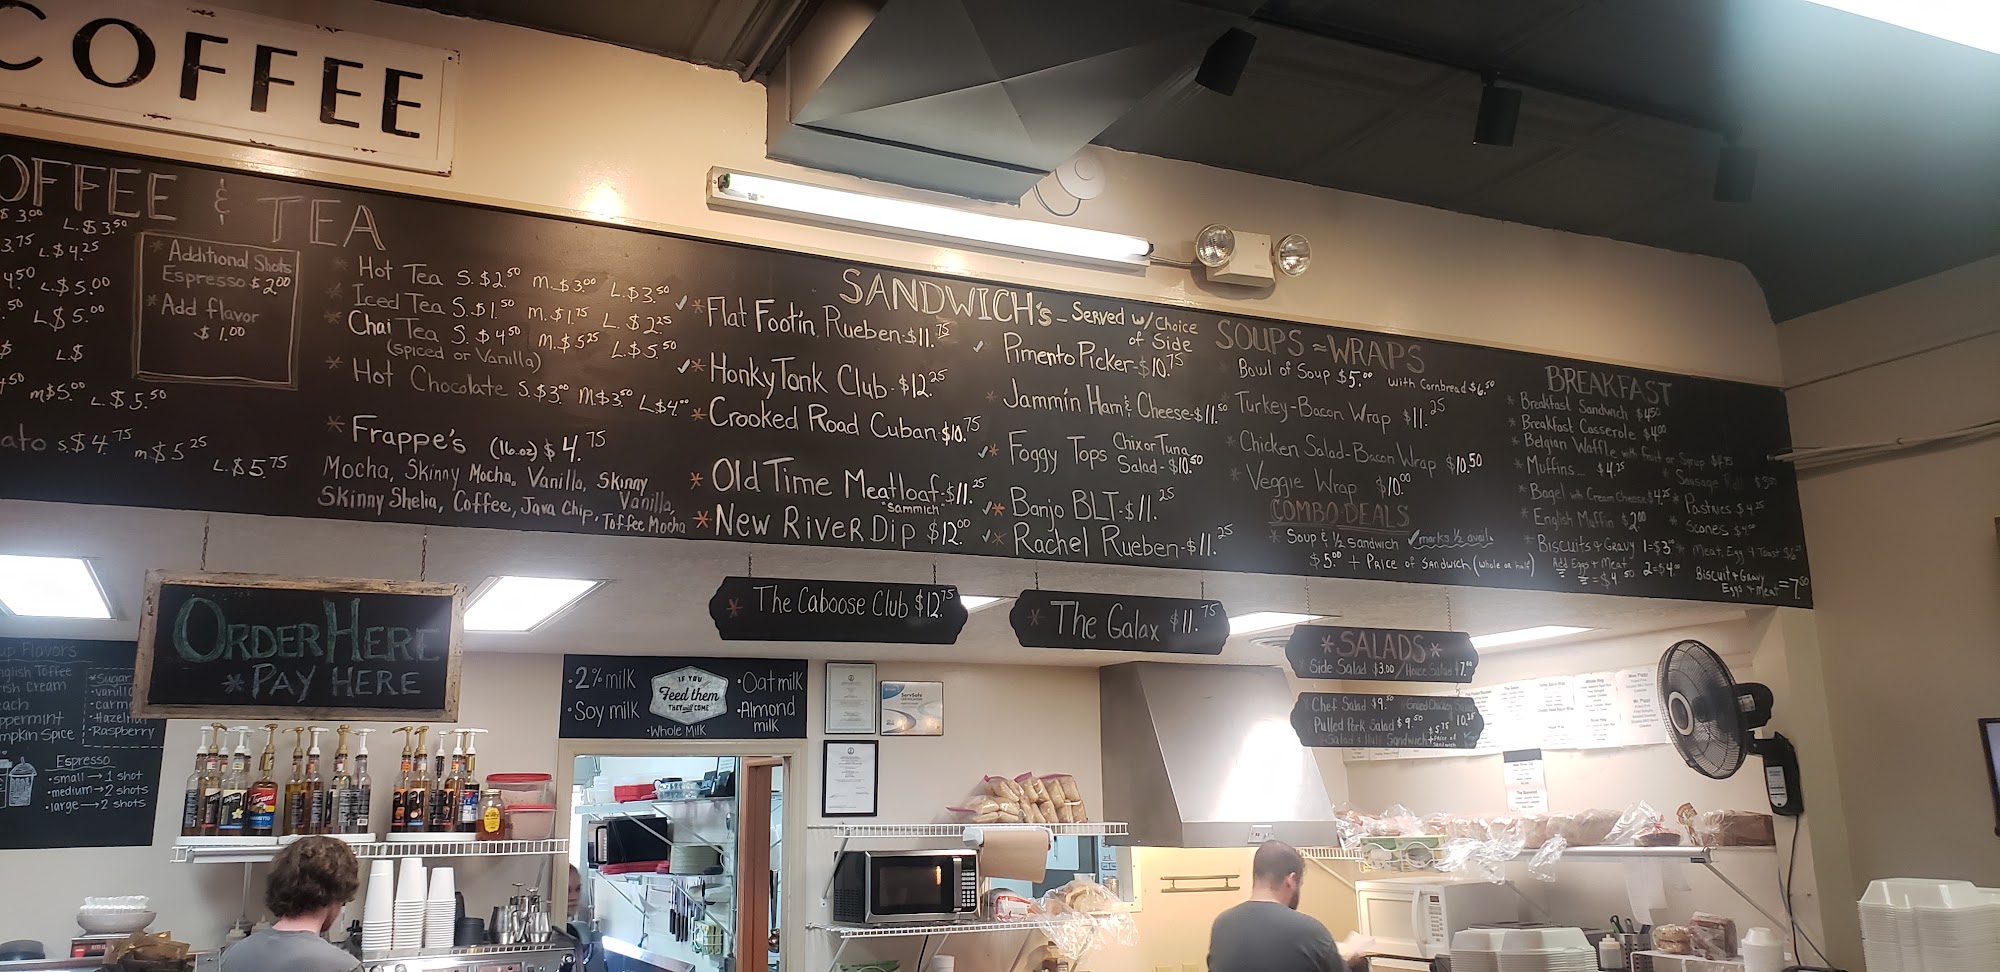 COFFEE
OFFEE & TEA
$3.00 L.$3.50
3.75 L.$4.25
4.50 L.$5.00
.50 L$5.00
$ L.$
.50 m$5.00 L.$5.50
ato S.$4.75 m$5.25 L.$5.75
* Additional Shots
Espresso $2.00
* Add flavor
$1.00
* Hot Tea S.$2.50 m.$3.00 L.$3.50
* Iced Tea S.$1.50 m.$1.75 L.$2.25
* Chai Tea S.$4.50 m.$5.25 L.$5.50
(spiced or Vanilla)
* Hot Chocolate S.$3.00 M$3.50 L$4.00
* Frappe's (16.oz) $4.75
Mocha, Skinny Mocha, Vanilla, Skinny
Vanilla,
Skinny Shelia, Coffee, Java Chip, Toffee Mocha
SANDWICH's - Served w/ Choice
of Side
✓* Flat Foot'n Rueben-$11.75
✓* HonkyTonk Club-$12.25
* Crooked Road Cuban-$10.75
* Old Time Meatloaf-$11.25
"Sammich"
* New River Dip $12.00
✓ Pimento Picker-$10.75
* Jammin Ham & Cheese-$11.50
✓* Foggy Tops Chix or Tuna
Salad-$10.50
✓* Banjo BLT-$11.25
✓* Rachel Rueben-$11.25
SOUPS ≈ WRAPS
* Bowl of Soup $5.00 with Cornbread $6.50
* Turkey-Bacon Wrap $11.25
* Chicken Salad-Bacon Wrap $10.50
* Veggie Wrap $10.00
COMBO DEALS
* Soup & 1/2 Sandwich ✓marks 1/2 avail.
$5.00 + Price of Sandwich (whole or half)
BREAKFAST
* Breakfast Sandwich $4.50
* Breakfast Casserole $4.00
* Belgian Waffle with Fruit or Syrup $4.75
* Muffins $4.25
* Sausage
* Bagel with Cream Cheese $4.25
* Pastries $4.25
* English Muffin $2.00
* Scones
* Biscuits & Gravy 1=$3.00
2=$4.00
Add Eggs & Meat
=$4.50
* Meat, Egg & Toast
Biscuit & Gravy
Eggs & Meat =7.50
ORDER HERE
*PAY HERE
* The Caboose Club $12.75
* The Galax $11.75
*SALADS*
* Side Salad $3.00 / House Salad $7.00
* Chef Salad $9.50
Pulled Pork Salad $9.50
•2% milk
•Soy milk
•Whole Milk
IF YOU
Feed them
THEY will COME
•Oat milk
•Almond
milk
ServSafe
up Flavors
nglish Toffee
ish Cream
each
ppermint
mpkin Spice
*Sugar
•Vanill
•carm
•Hazelnu
•Raspberry
Espresso
•small → 1 shot
•medium → 2 shots
•large → 2 shots
Torani